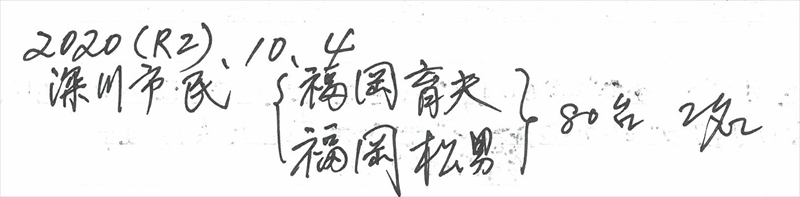 2020(R2)、10、4
深川市民、{福岡育夫
福岡松男} 80台 2名